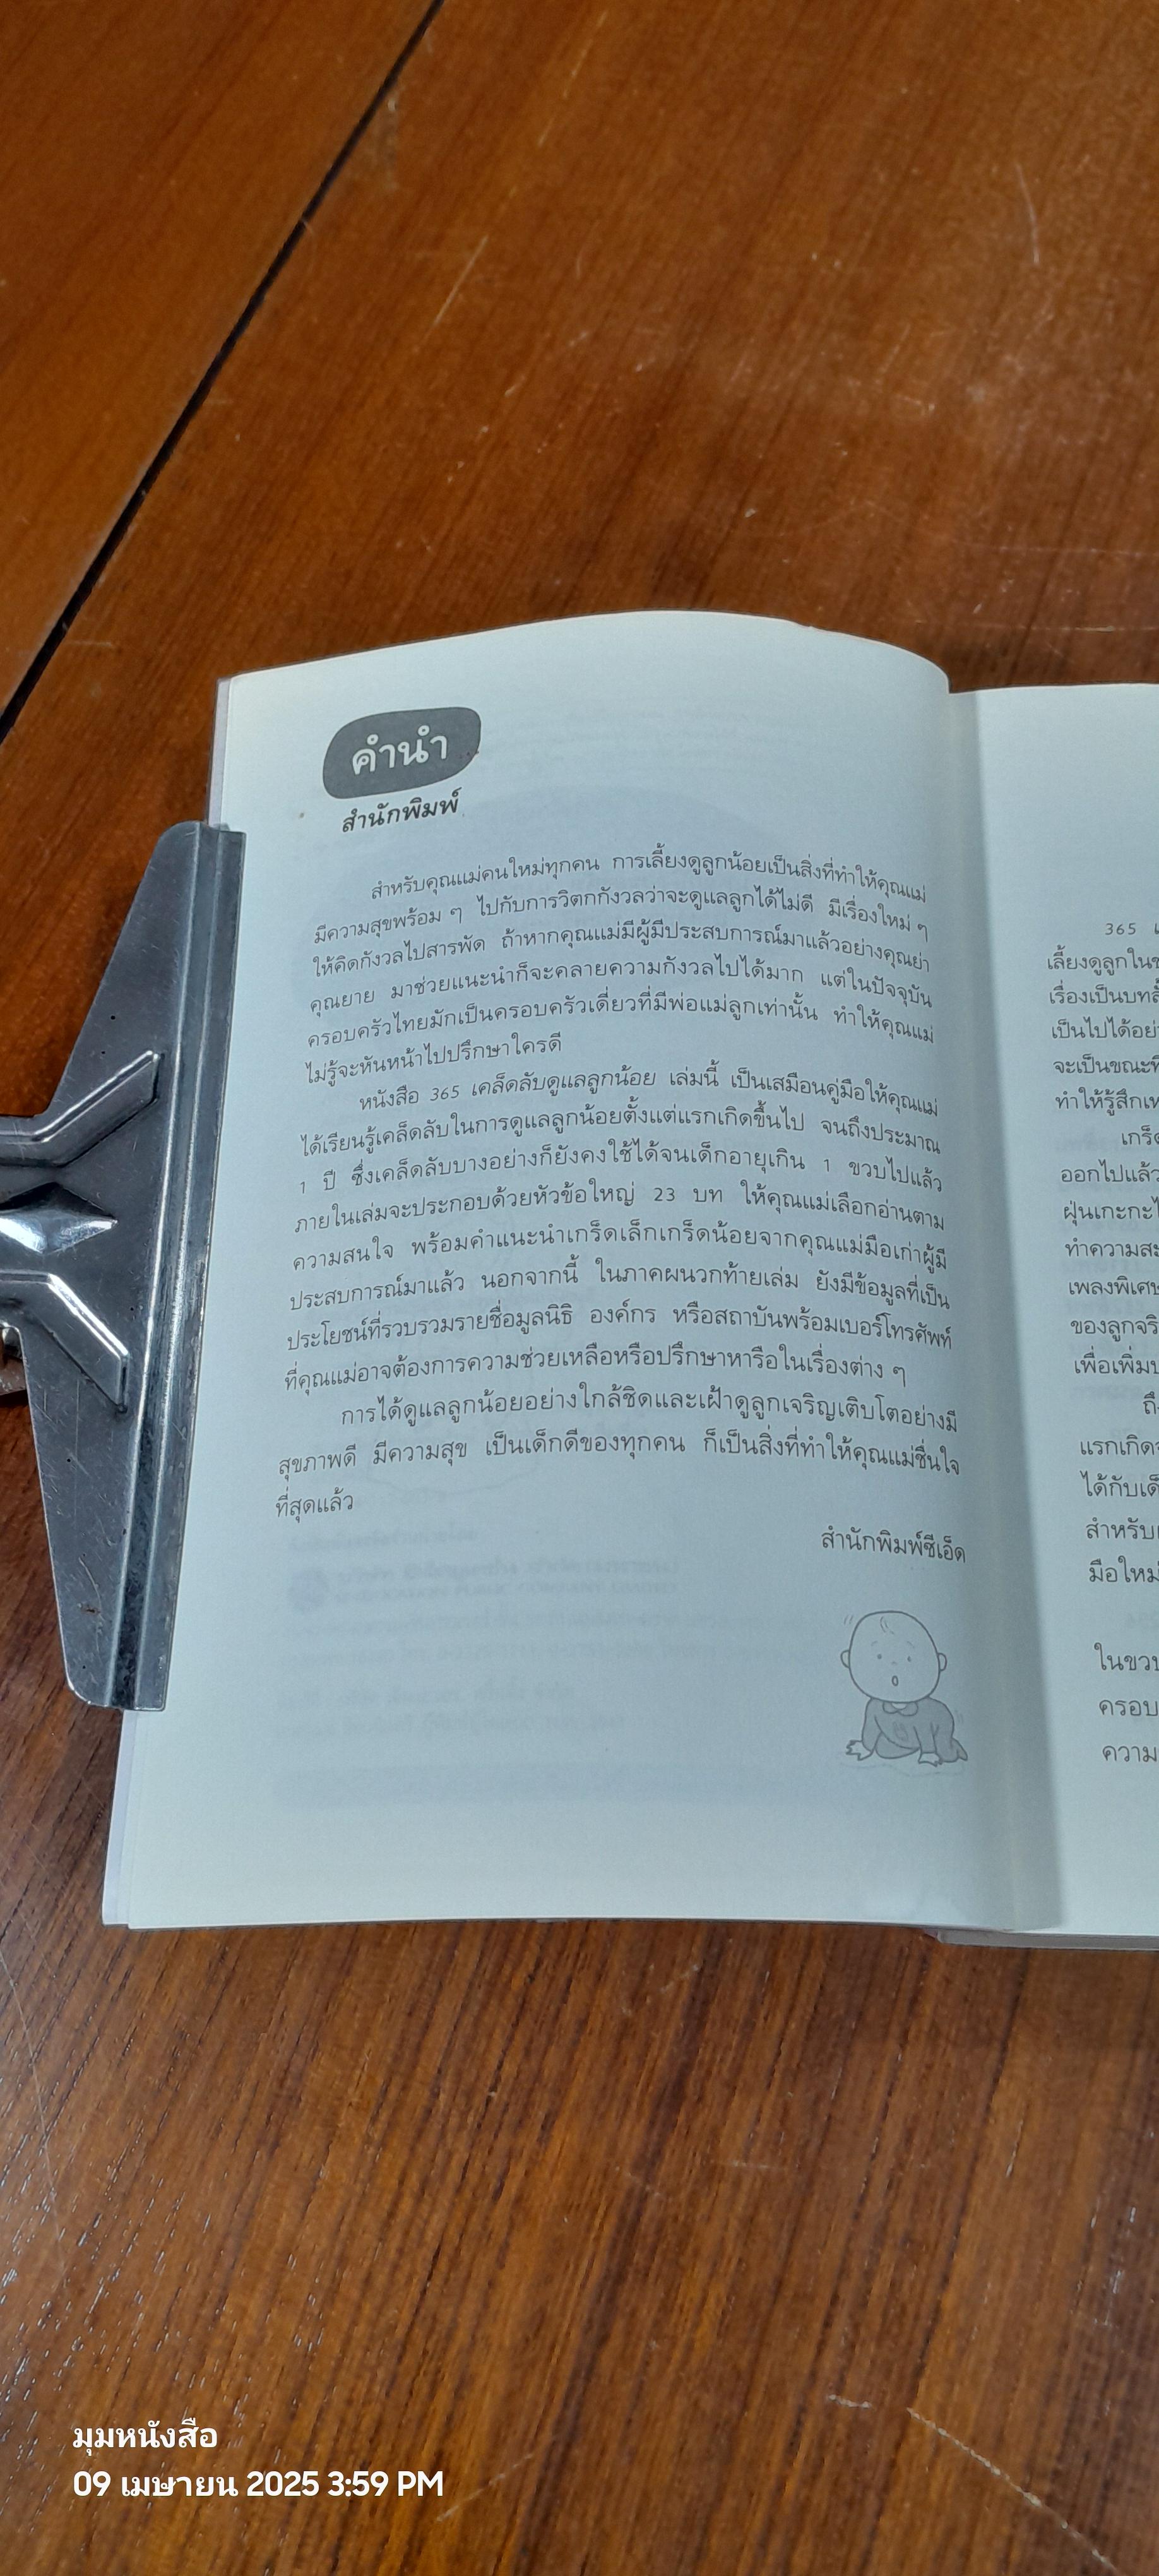 คำนำ
สำนักพิมพ์
สำหรับคุณแม่คนใหม่ทุกคน การเลี้ยงดูลูกน้อยเป็นสิ่งที่ทำให้คุณแม่
มีความสุขพร้อม ๆ ไปกับการวิตกกังวลว่าจะดูแลลูกได้ไม่ดี มีเรื่องใหม่ ๆ
ให้คิดกังวลไปสารพัด ถ้าหากคุณแม่มีผู้มีประสบการณ์มาแล้วอย่างคุณย่า
คุณยาย มาช่วยแนะนำก็จะคลายความกังวลไปได้มาก แต่ในปัจจุบัน
ครอบครัวไทยมักเป็นครอบครัวเดี่ยวที่มีพ่อแม่ลูกเท่านั้น ทำให้คุณแม่
ไม่รู้จะหันหน้าไปปรึกษาใครดี
หนังสือ 365 เคล็ดลับดูแลลูกน้อย เล่มนี้ เป็นเสมือนคู่มือให้คุณแม่
ได้เรียนรู้เคล็ดลับในการดูแลลูกน้อยตั้งแต่แรกเกิดขึ้นไป จนถึงประมาณ
1 ปี ซึ่งเคล็ดลับบางอย่างก็ยังคงใช้ได้จนเด็กอายุเกิน 1 ขวบไปแล้ว
ภายในเล่มจะประกอบด้วยหัวข้อใหญ่ 23 บท ให้คุณแม่เลือกอ่านตาม
ความสนใจ พร้อมคำแนะนำเกร็ดเล็กเกร็ดน้อยจากคุณแม่มือเก่าผู้มี
ประสบการณ์มาแล้ว นอกจากนี้ ในภาคผนวกท้ายเล่ม ยังมีข้อมูลที่เป็น
ประโยชน์ที่รวบรวมรายชื่อมูลนิธิ องค์กร หรือสถาบันพร้อมเบอร์โทรศัพท์
ที่คุณแม่อาจต้องการความช่วยเหลือหรือปรึกษาหารือในเรื่องต่าง ๆ
การได้ดูแลลูกน้อยอย่างใกล้ชิดและเฝ้าดูลูกเจริญเติบโตอย่างมี
สุขภาพดี มีความสุข เป็นเด็กดีของทุกคน ก็เป็นสิ่งที่ทำให้คุณแม่ชื่นใจ
ที่สุดแล้ว
สำนักพิมพ์ซีเอ็ด
365
เลี้ยงดูลูกใน
เรื่องเป็นบท
เป็นไปได้อย่
จะเป็นขณะที่
ทำให้รู้สึก
เกร็ด
ออกไปแล้ว
ฝุ่นเกะกะ
ทำความสะ
เพลงพิเศษ
ของลูก
เพื่อเพิ่ม
ถึง
แรกเกิด
ได้กับ
สำหรับ
มือใหม่
ในขวบ
ครอบ
ความ
มุมหนังสือ
09 เมษายน 2025 3:59 PM